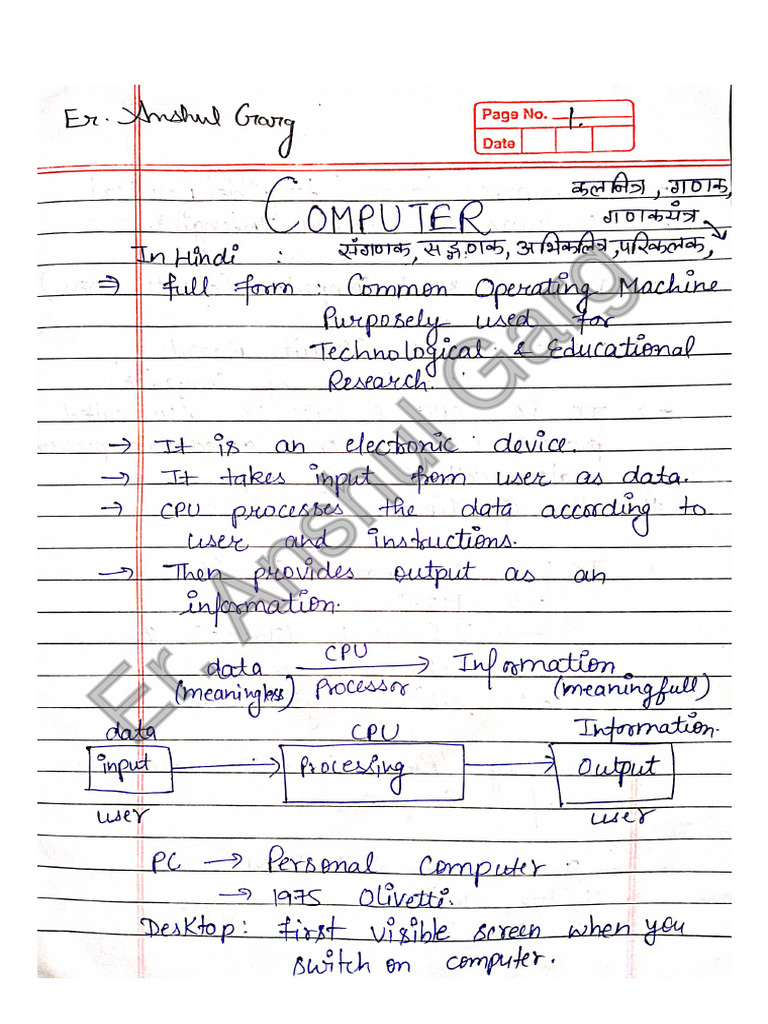 Er. Anshul Garg
Page No. 1.
Date
कलनित्र, गणक,
COMPUTER गणकयंत्र
In Hindi : संगणक, सङ्गणक, अभिकलित्र, परिकलक,
⇒ Full form : Common Operating Machine
Purposely used for
Technological & Educational
Research.
→ It is an electronic device.
→ It takes input from user as data.
→ CPU processes the data according to
user and instructions.
→ Then provides output as an
information.
data CPU → Information
(meaningless) Processor (meaningfull)
data CPU Information.
input → Processing → Output
user user
PC → Personal Computer.
→ 1975 Olivetti.
Desktop: first visible screen when you
switch on computer.
Er. Anshul Garg